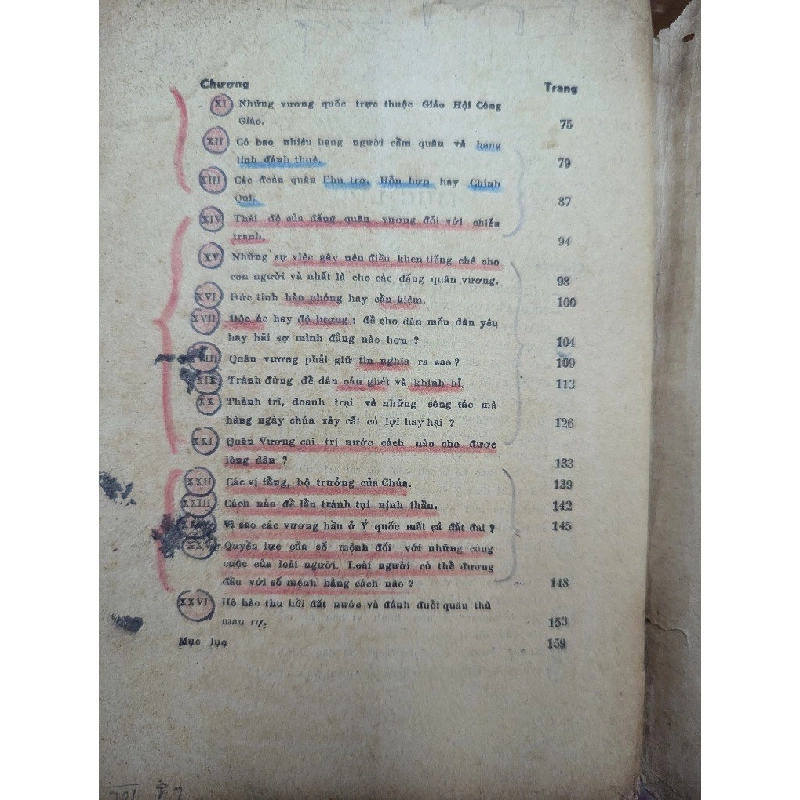 Chương Trang
XI Những vương quốc trực thuộc Giáo Hội Công
Giáo. 75
XII Có bao nhiêu hạng người cầm quân và hạng
lính đánh thuê. 79
XIII Các đoàn quân Phụ trợ, Hỗn hợp hay Chính
Qui. 87
XIV Thái độ của đấng quân vương đối với chiến
tranh. 94
XV Những sự việc gây nên điều khen tiếng chê cho
con người và nhất là cho các đấng quân vương. 98
XVI Đức tính hào phóng hay cần kiệm. 100
XVII Độc ác hay độ lượng : để cho dân mến dân yêu
hay hãi sợ mình đằng nào hơn ? 104
XVIII Quân vương phải giữ tín nghĩa ra sao ? 109
XIX Tránh đừng để dân oán ghét và khinh bỉ. 113
XX Thành trì, doanh trại và những công tác mà
hàng ngày chúa xây cất có lợi hay hại ? 126
XXI Quân Vương cai trị nước cách nào cho được
lòng dân ? 133
XXII Các vị tổng, bộ trưởng của Chúa. 139
XXIII Cách nào để lẩn tránh tụi nịnh thần. 142
Vì sao các vương hầu ở Ý quốc mất cả đất đai ? 145
Quyền lực của số mệnh đối với những công
cuộc của loài người. Loài người có thể đương
đầu với số mệnh bằng cách nào ? 148
XXVI Hô hào thu hồi đất nước và đánh đuổi quân thù
man rợ. 153
Mục lục 159